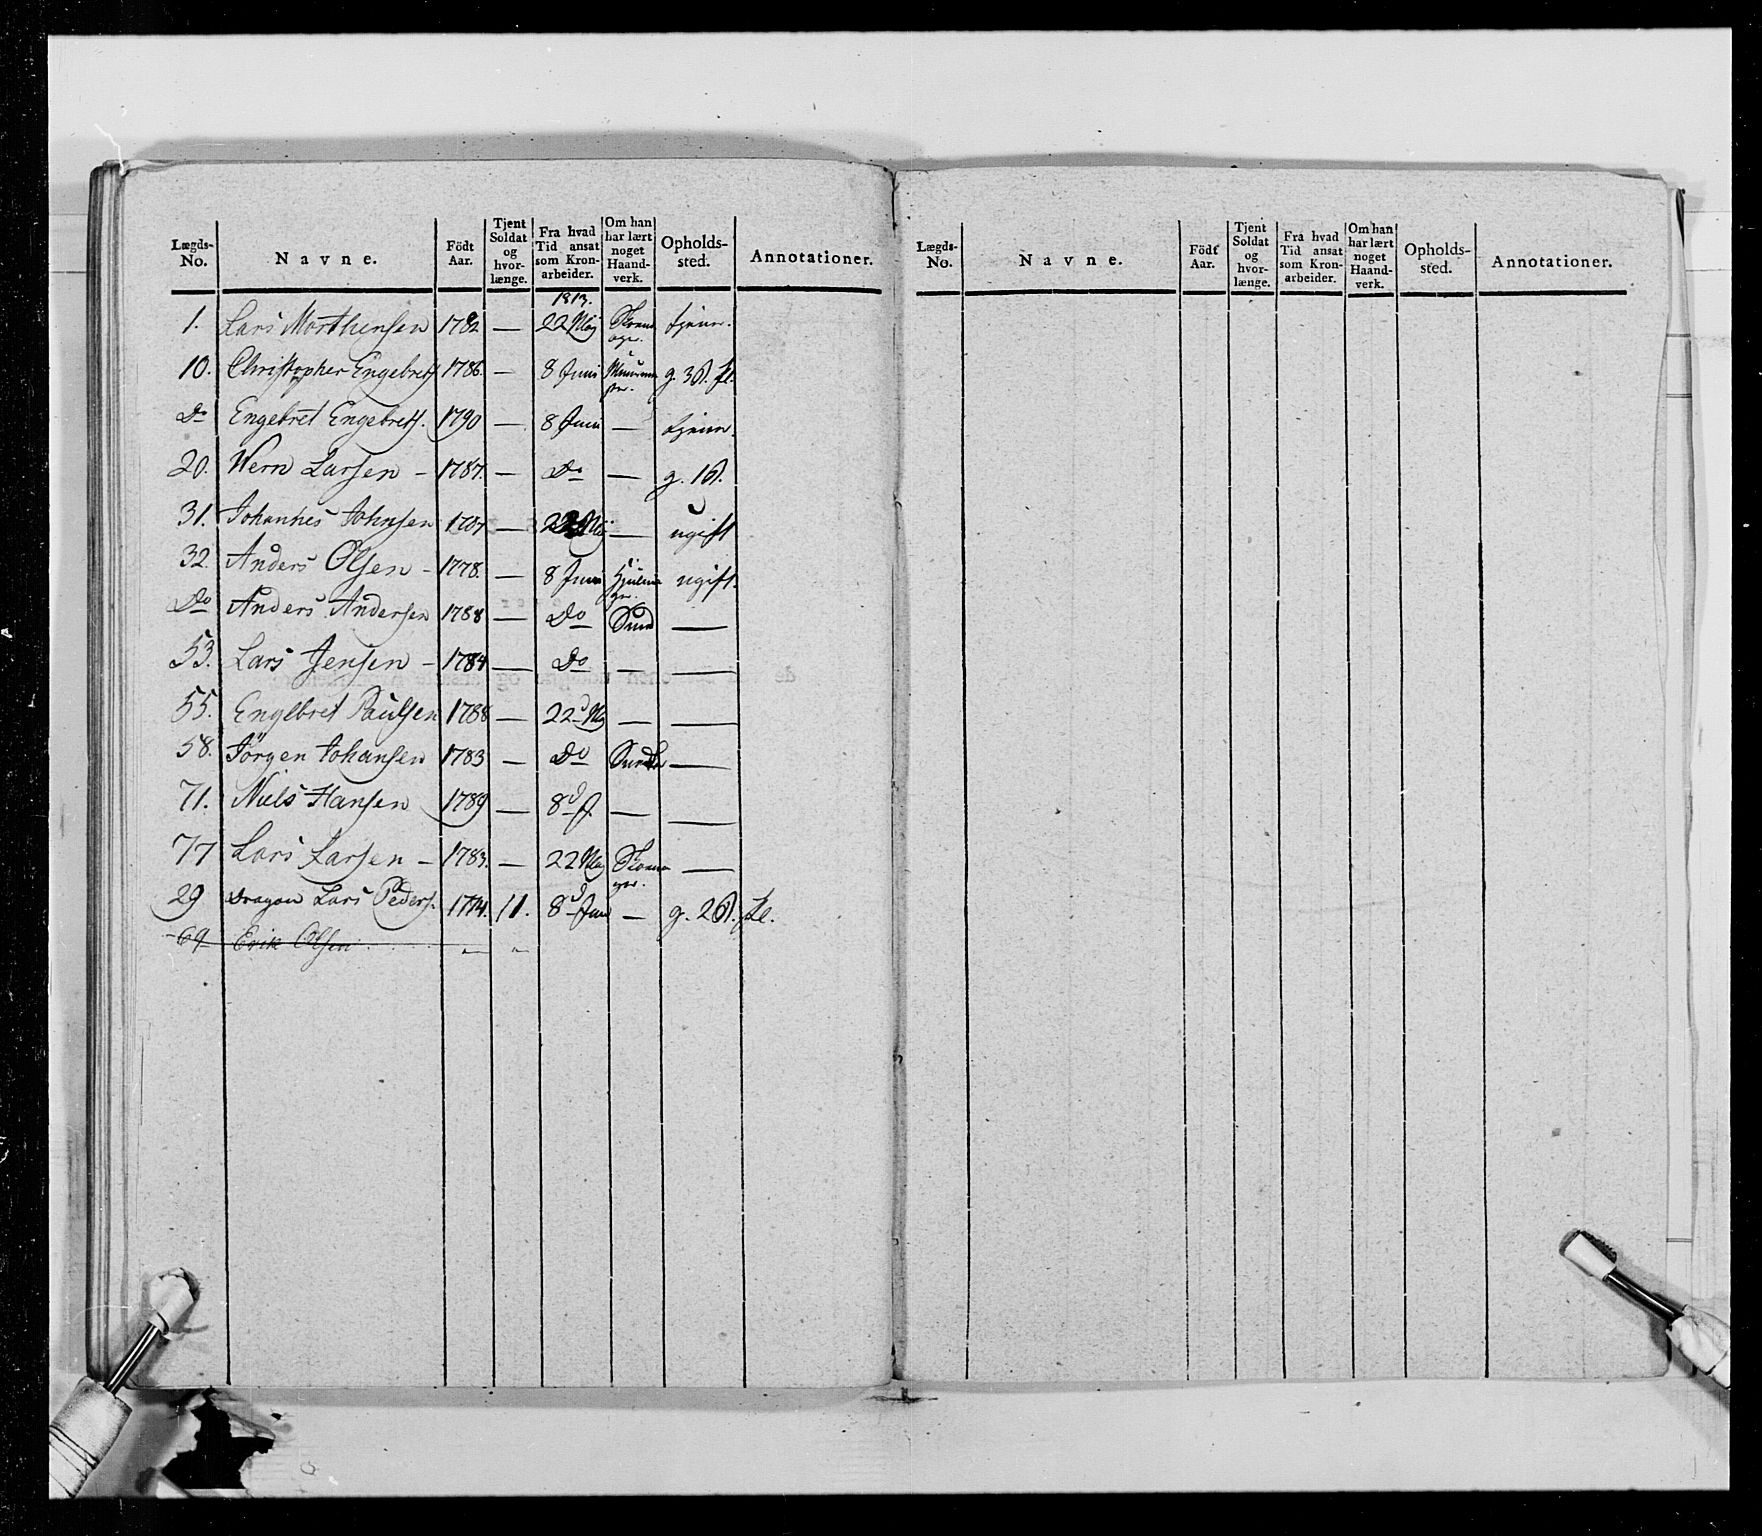 Lægds-No. Navne. Födt Aar. Tjent Soldat og hvor-længe. Fra hvad Tid ansat som Kron-arbeider. Om han har lært noget Haand-verk. Opholds-sted. Annotationer.
1813.
1. Lars Morthensen 1782 — 22 Maj tjener.
10. Christopher Engebrets 1786. — 8 Juni g. 3 B. kl.
Do Engebret Engebrets. 1790 — 8 Juni — tjener.
20. Wern Larsen — 1787. — Do — g. 1 B.
31. Johannes Johnsen 1787 — 22 Maj — ugift
32 Anders Olsen — 1778. — 8 Juni ugift.
Do Anders Andersen 1788 — Do Smed —
53. Lars Jensen — 1784 — Do — —
55. Engebret Paulsen 1788 — 22d Maj — —
58. Jörgen Johansen 1783 — Do —
71. Niels Hansen 1789 — 8d J. — —
77 Lars Larsen — 1783. — 22 Maj —
29 Dragon Lars Peders. 1774. 11. 8d Juni — g. 2 B. kl.
69 Erik Olsen
Lægds-No. Navne. Födt Aar. Tjent Soldat og hvor-længe. Fra hvad Tid ansat som Kron-arbeider. Om han har lært noget Haand-verk. Opholds-sted. Annotationer.